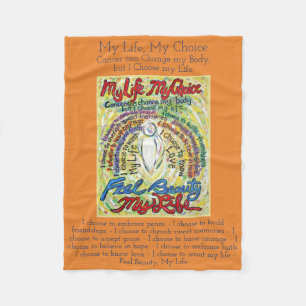 My Life, My Choice
Cancer can Change my Body,
But I Choose my Life.
My Life My Choice
Cancer can change my body
but I choose my life
My Life
Love
Feel Beauty
My Life
I choose to embrace peace - I choose to build
friendships - I choose to cherish sweet memories - I
I choose to accept grace - I choose to have courage - I
choose to believe in hope - I choose to welcome faith
I choose to know love - I choose to want my life
Feel Beauty, My Life